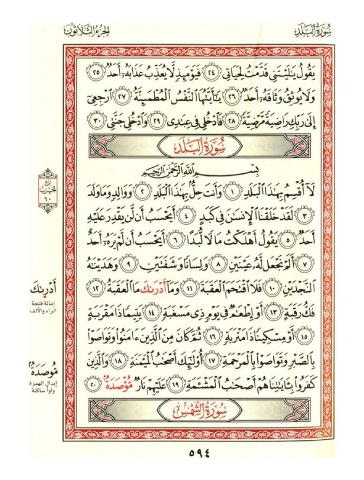 سُورَةُ البَلَدِ
الجُزءُ الثَّلاثُونَ
يَقُولُ يَٰلَيْتَنِى قَدَّمْتُ لِحَيَاتِى ٢٤ فَيَوْمَئِذٍ لَّا يُعَذِّبُ عَذَابَهُۥٓ أَحَدٌ ٢٥
وَلَا يُوثِقُ وَثَاقَهُۥٓ أَحَدٌ ٢٦ يَٰٓأَيَّتُهَا ٱلنَّفْسُ ٱلْمُطْمَئِنَّةُ ٢٧ ٱرْجِعِىٓ
إِلَىٰ رَبِّكِ رَاضِيَةً مَّرْضِيَّةً ٢٨ فَٱدْخُلِى فِى عِبَٰدِى ٢٩ وَٱدْخُلِى جَنَّتِى ٣٠
سُورَةُ البَلَدِ
بِسْمِ ٱللَّهِ ٱلرَّحْمَٰنِ ٱلرَّحِيمِ
لَآ أُقْسِمُ بِهَٰذَا ٱلْبَلَدِ ١ وَأَنتَ حِلٌّۢ بِهَٰذَا ٱلْبَلَدِ ٢ وَوَالِدٍ وَمَا وَلَدَ
٣ لَقَدْ خَلَقْنَا ٱلْإِنسَٰنَ فِى كَبَدٍ ٤ أَيَحْسِبُ أَن لَّن يَقْدِرَ عَلَيْهِ
أَحَدٌ ٥ يَقُولُ أَهْلَكْتُ مَالًا لُّبَدًا ٦ أَيَحْسِبُ أَن لَّمْ يَرَهُۥٓ أَحَدٌ
٧ أَلَمْ نَجْعَل لَّهُۥ عَيْنَيْنِ ٨ وَلِسَانًا وَشَفَتَيْنِ ٩ وَهَدَيْنَٰهُ
ٱلنَّجْدَيْنِ ١٠ فَلَا ٱقْتَحَمَ ٱلْعَقَبَةَ ١١ وَمَآ أَدْرَىٰكَ مَا ٱلْعَقَبَةُ ١٢
فَكُّ رَقَبَةٍ ١٣ أَوْ إِطْعَٰمٌ فِى يَوْمٍ ذِى مَسْغَبَةٍ ١٤ يَتِيمًا ذَا مَقْرَبَةٍ
١٥ أَوْ مِسْكِينًا ذَا مَتْرَبَةٍ ١٦ ثُمَّ كَانَ مِنَ ٱلَّذِينَ ءَامَنُوا۟ وَتَوَاصَوْا۟
بِٱلصَّبْرِ وَتَوَاصَوْا۟ بِٱلْمَرْحَمَةِ ١٧ أُو۟لَٰٓئِكَ أَصْحَٰبُ ٱلْمَيْمَنَةِ ١٨ وَٱلَّذِينَ
كَفَرُوا۟ بِـَٔايَٰتِنَا هُمْ أَصْحَٰبُ ٱلْمَشْـَٔمَةِ ١٩ عَلَيْهِمْ نَارٌ مُّوصَدَةٌۢ ٢٠
سُورَةُ الشَّمْسِ
أَدْرِىٰكَ
إمالة فتحة
الراء والألف
مُوصَدَةٌ
إبدال الهمزة
واوا ساكنة
٥٩٤